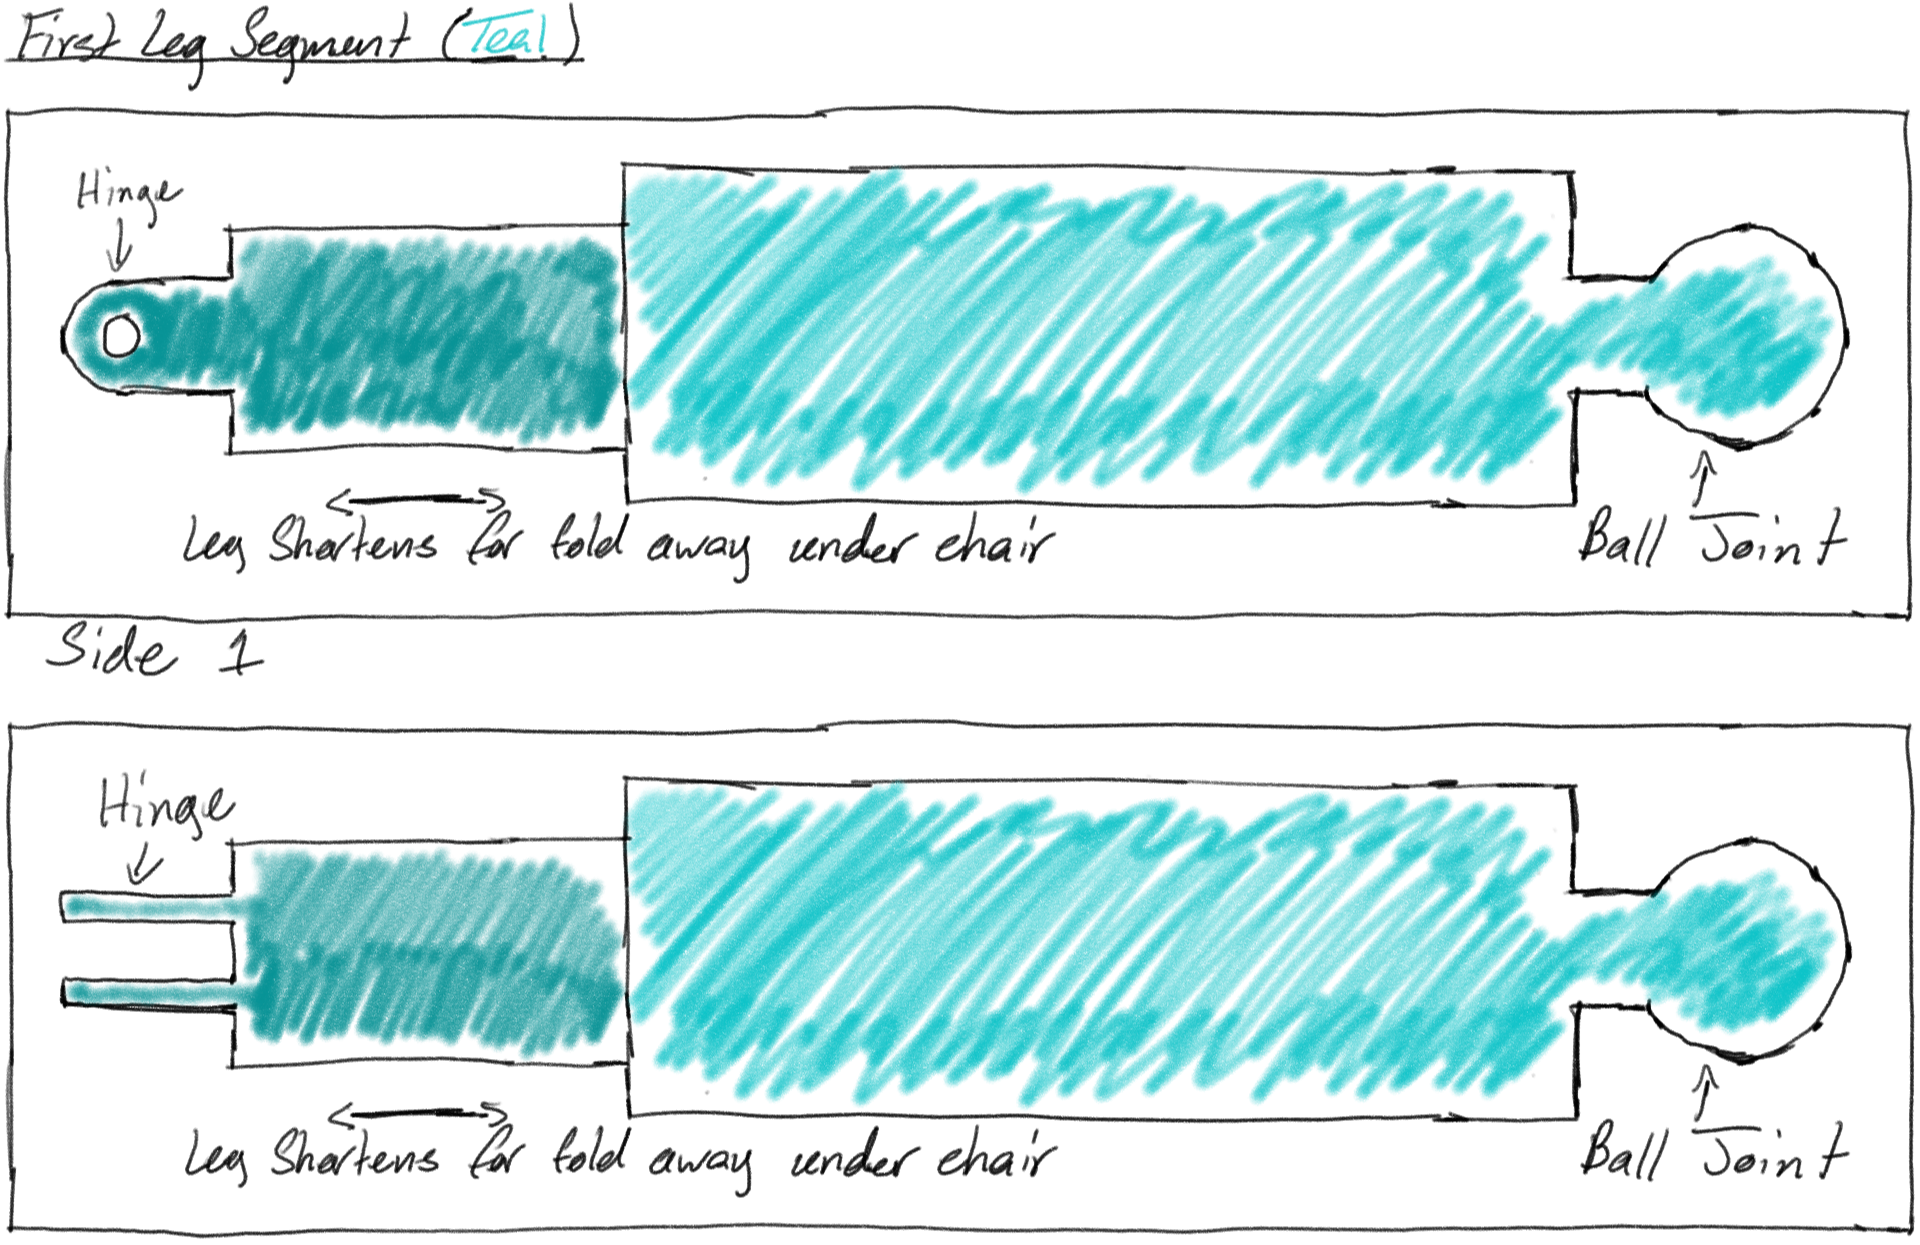 First Leg Segment (Teal)
Hinge
Leg Shortens for fold away under chair
Ball Joint
Side 1
Hinge
Leg Shortens for fold away under chair
Ball Joint